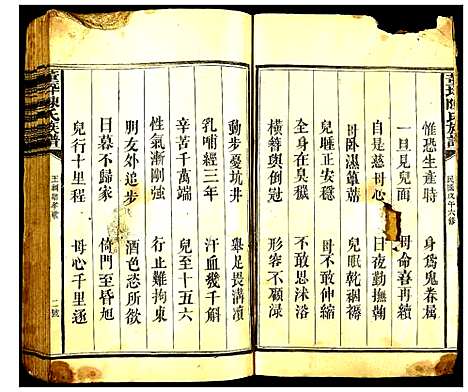 惟恐生產時 身爲鬼眷屬
一旦見兒面 母命喜再續
自是慈母心 日夜勤撫鞠
母臥濕簟蓆 兒眠乾裀褥
兒睡正安穩 不敢思沐浴
全身在臭穢
橫簪與倒冠 形容不顧淥
動步憂坑井 舉足畏溝瀆
乳哺經三年 汗血幾千斛
辛苦千萬端 兒至十五六
性氣漸剛強 行止難拘束
朋友外追步 酒色恣所欲
日暮不歸家 倚門至昏旭
兒行十里程 母心千里逐
陳氏族譜
民國戊午六修
陳氏族譜
二號